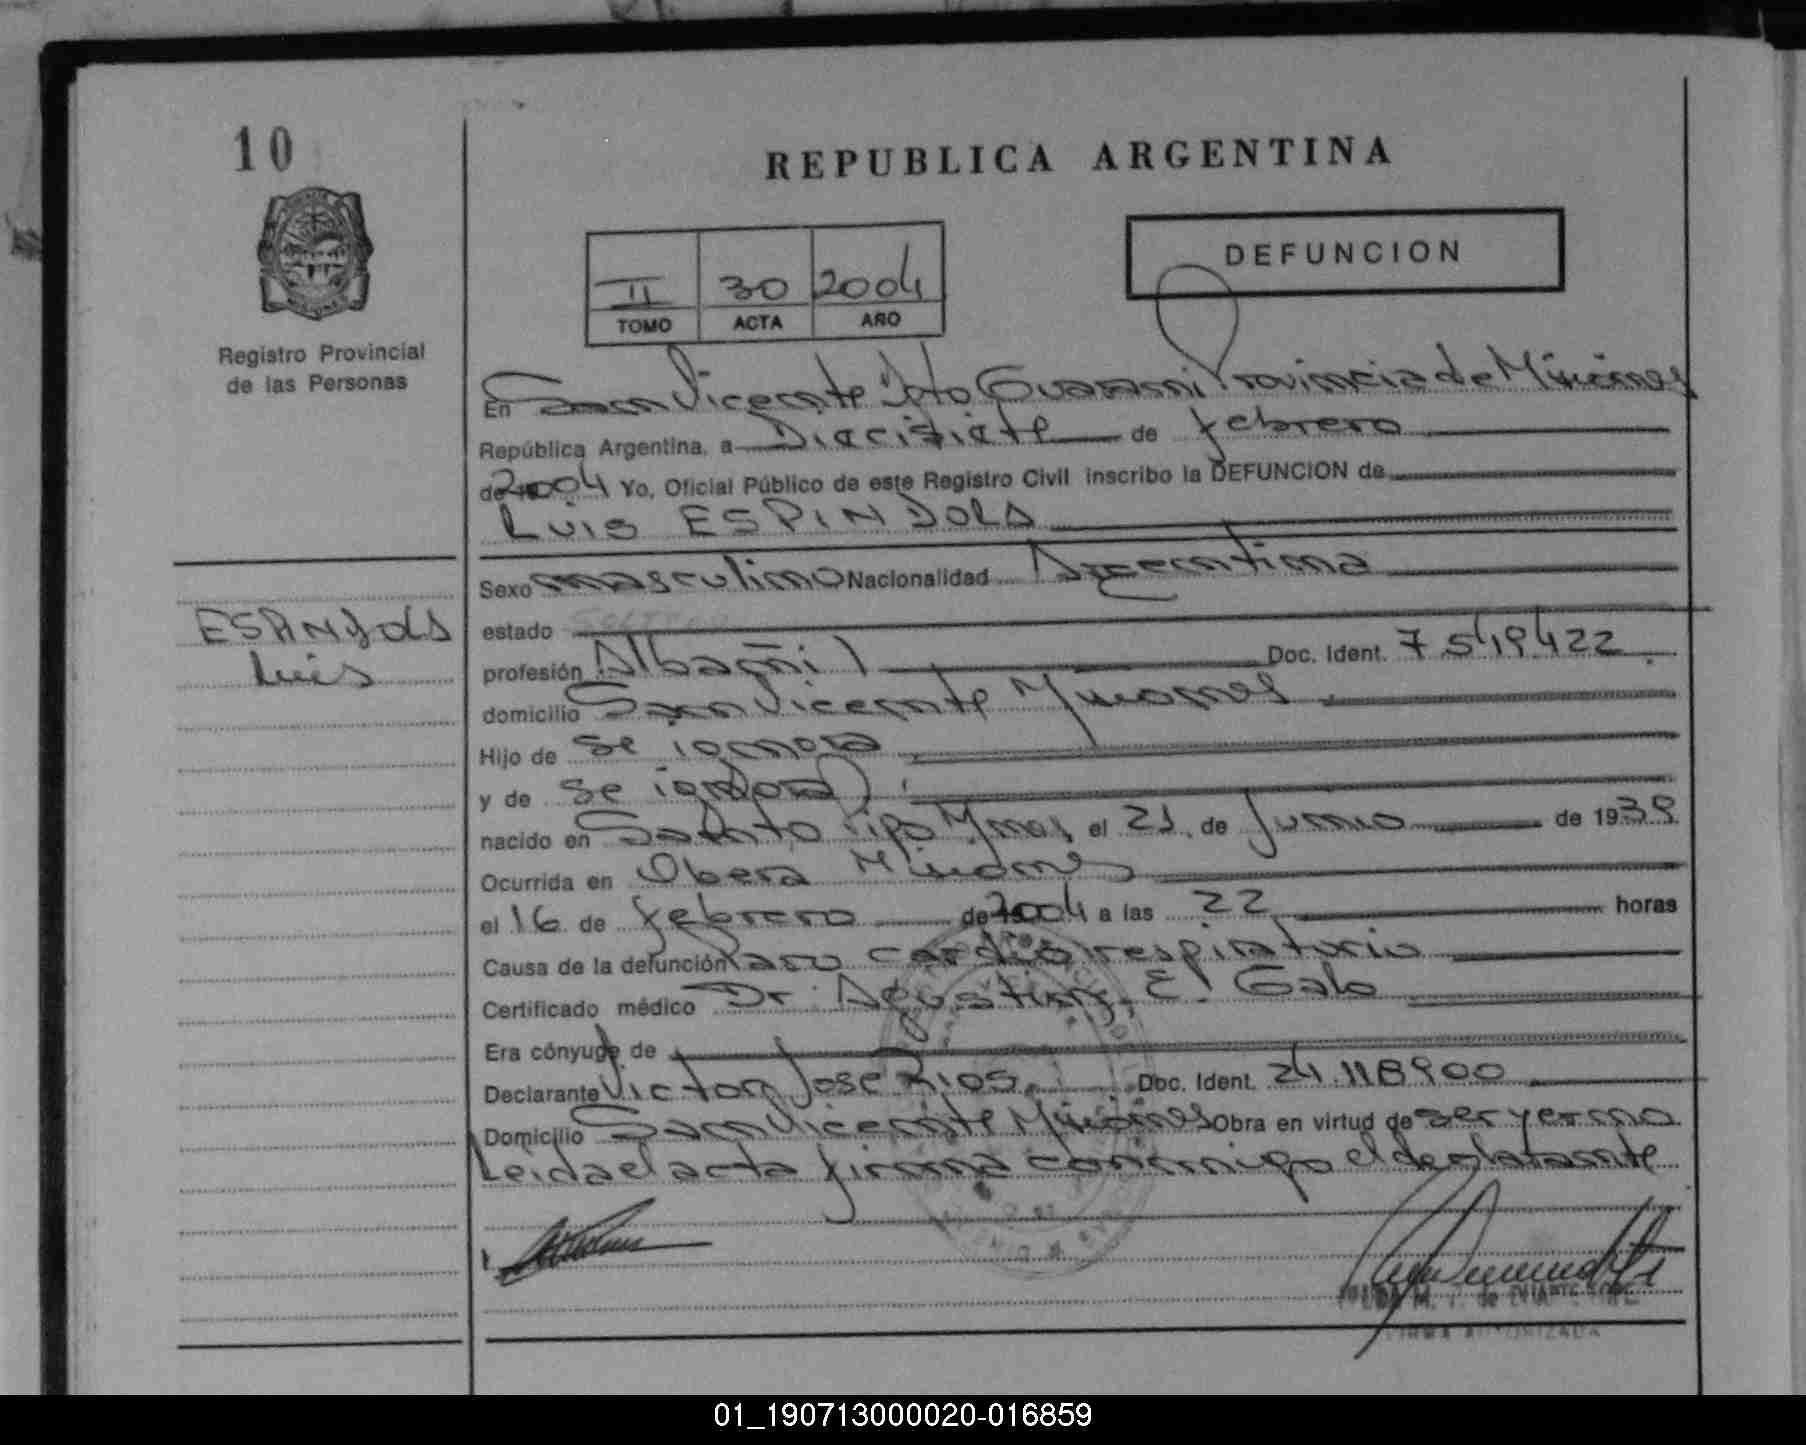 10
REPUBLICA ARGENTINA
DEFUNCION
II 30 2004
TOMO ACTA AÑO
Registro Provincial
de las Personas
En San Vicente Dto Guarani Provincia de Misiones
República Argentina, a Diecisiete de febrero
de 2004 Yo, Oficial Público de este Registro Civil inscribo la DEFUNCION de
Luis ESPINDOLA
Sexo masculino Nacionalidad Argentina
ESPINDOLA
Luis
estado
profesión Albañil Doc. Ident. 7.549.422
domicilio San Vicente Misiones
Hijo de se ignora
y de se ignora
nacido en Santo Pipo Mnes el 21 de Junio de 1939
Ocurrida en Obera Misiones
el 16 de febrero de 2004 a las 22 horas
Causa de la defunción Paro cardio respiratorio
Certificado médico Dr. Agustin E. Galo
Era cónyuge de
Declarante Victor Jose Rios. Doc. Ident. 24.118900
Domicilio San Vicente Misiones Obra en virtud de ser yerno
Leida el acta firma conmigo el declarante
FIRMA AUTORIZADA
01_190713000020-016859